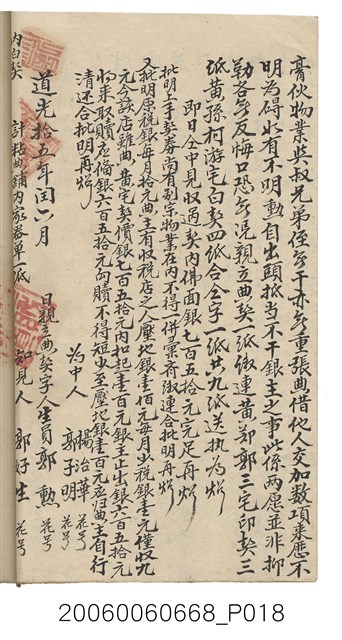 膏伙物業與叔兄弟侄無干亦無重張典借他人交加數項來歷不
明為碍如有不明勳自出頭抵当不干銀主之事此係兩愿並非抑
勒各無反悔口恐無憑親立典契一紙繳連黄鄭郭三宅印契三
紙黄孫柯游宅白契四紙合仝字一紙共九紙送執為炤
即日仝中見收過契內佛面銀七百五十元完足再炤
批明上手契券尚有別宗物業在內不得一併彙齊繳連合批明再炤
又批明原稅銀每月拾元典主有收稅店之人壓地銀壹佰元每月少稅銀壹元僅收九
元今該店雖典黄宅契價銀七百五十元內扣起壹百元銀主止出銀六百五十元
將來取贖應備銀六百五十元向贖不得短少至壓地銀壹百元應歸典主自行
清还合批明再炤
為中人 楊治華 花号
郭子明 花号
道光拾五年閏六月 日親立典契字人生員郭勳 花号
知見人 郭好生 花号
計粘典鋪內家器單一紙
20060060668_P018